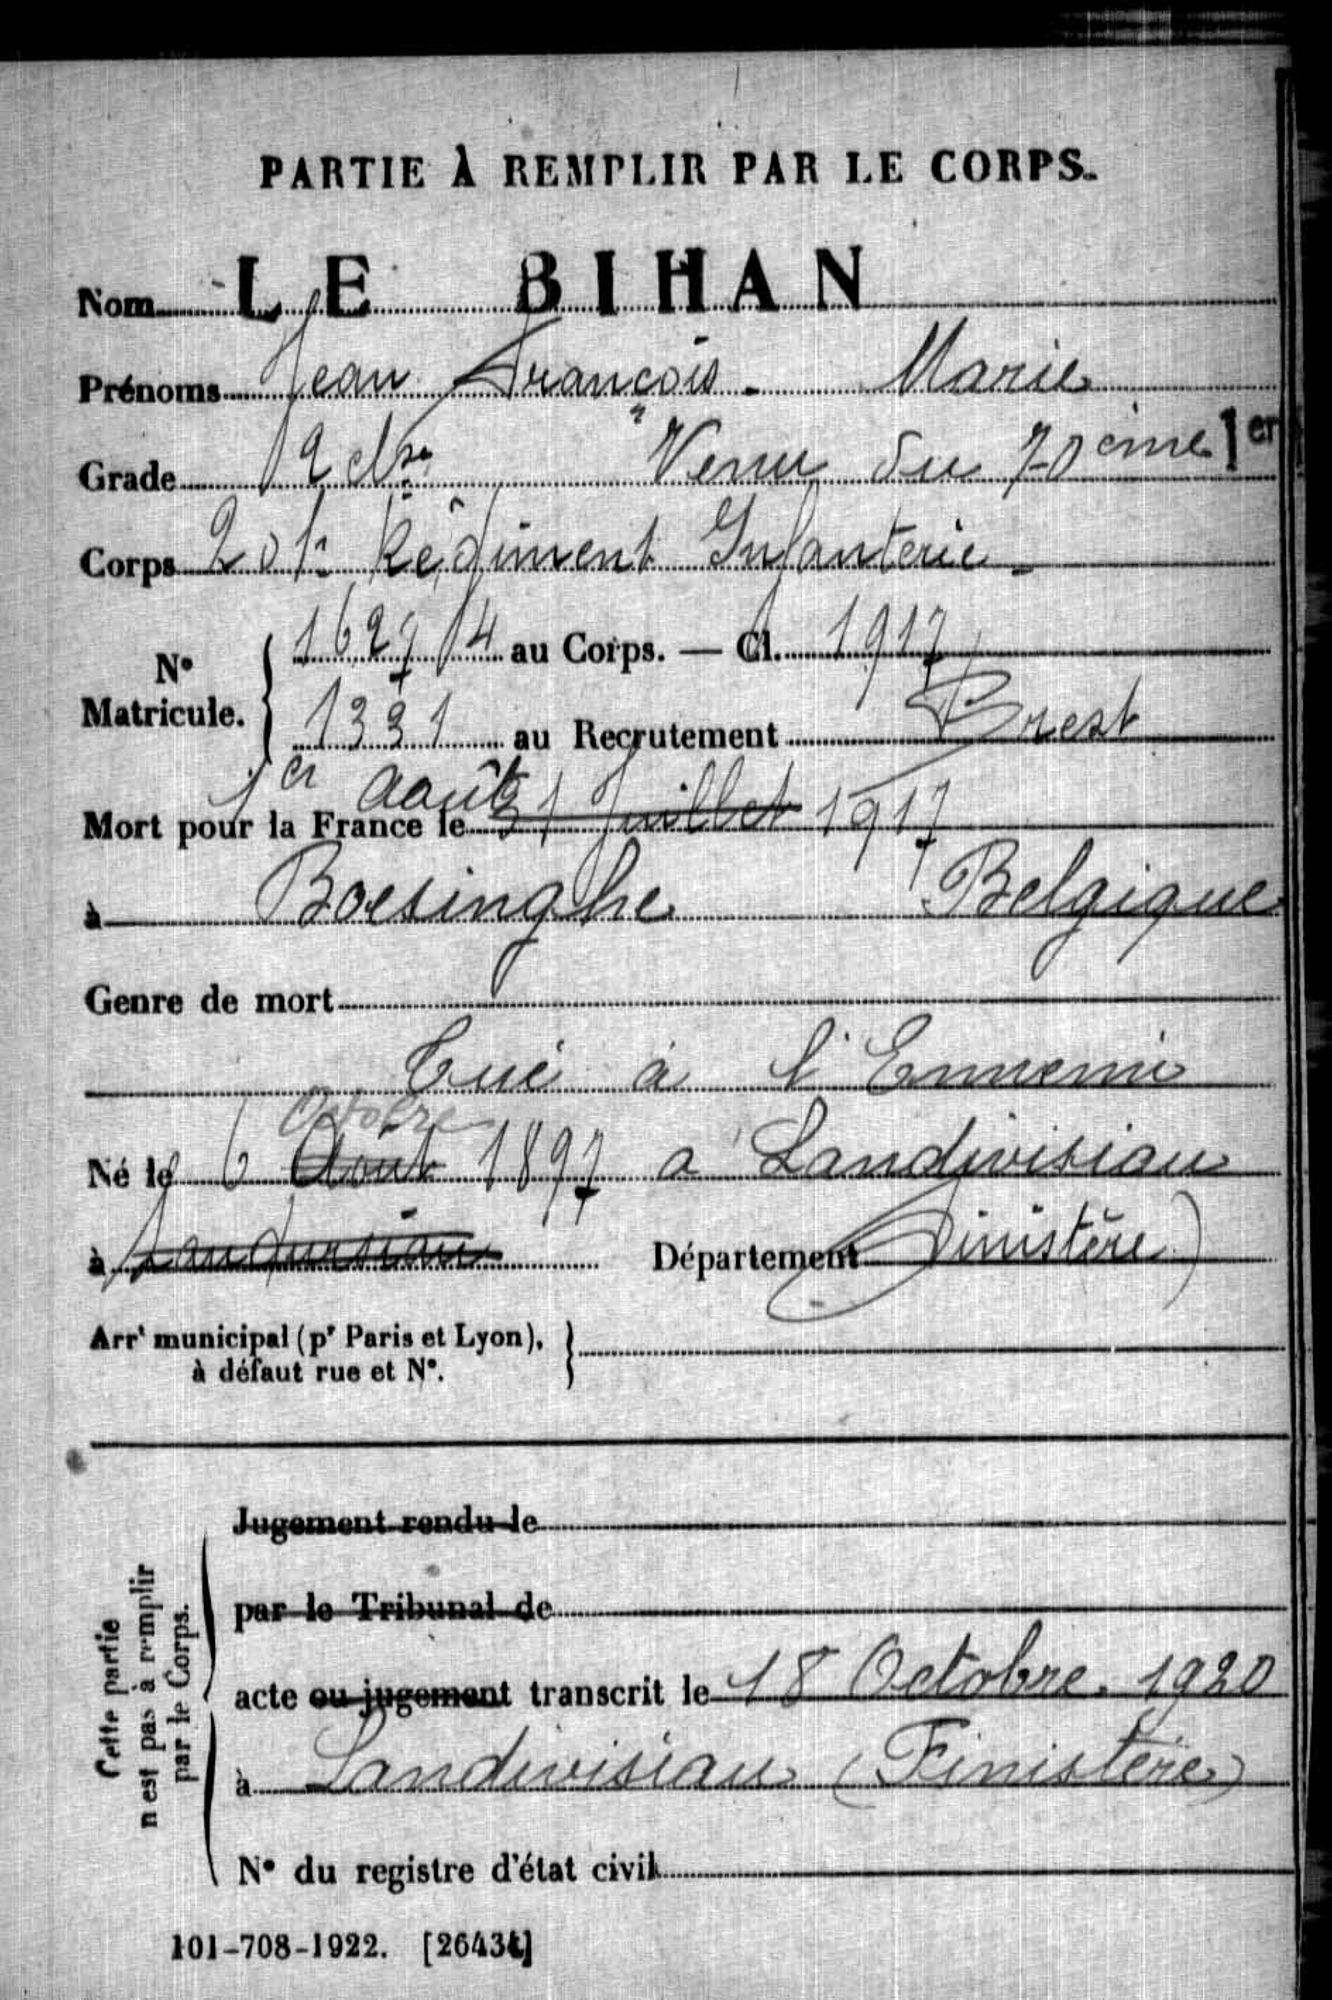 PARTIE À REMPLIR PAR LE CORPS.
Nom LE BIHAN
Prénoms Jean François - Marie
Grade 2 cl " Venu du 70ème 1er
Corps 201e Régiment Infanterie -
N° Matricule. 16274 au Corps. — Cl. 1917
1331 au Recrutement Brest
1er août
Mort pour la France le 31 Juillet 1917
à Boesinghe Belgique
Genre de mort
Tué à l'Ennemi
Octobre
Né le 6 Août 1897 a Landivisiau
à Landivisiau Département Finistère)
Arrt municipal (pr Paris et Lyon),
à défaut rue et N°.
Cette partie
n'est pas à remplir
par le Corps.
Jugement rendu le
par le Tribunal de
acte ou jugement transcrit le 18 Octobre. 1920
à Landivisiau (Finistère)
N° du registre d'état civil
101-708-1922. [26434]